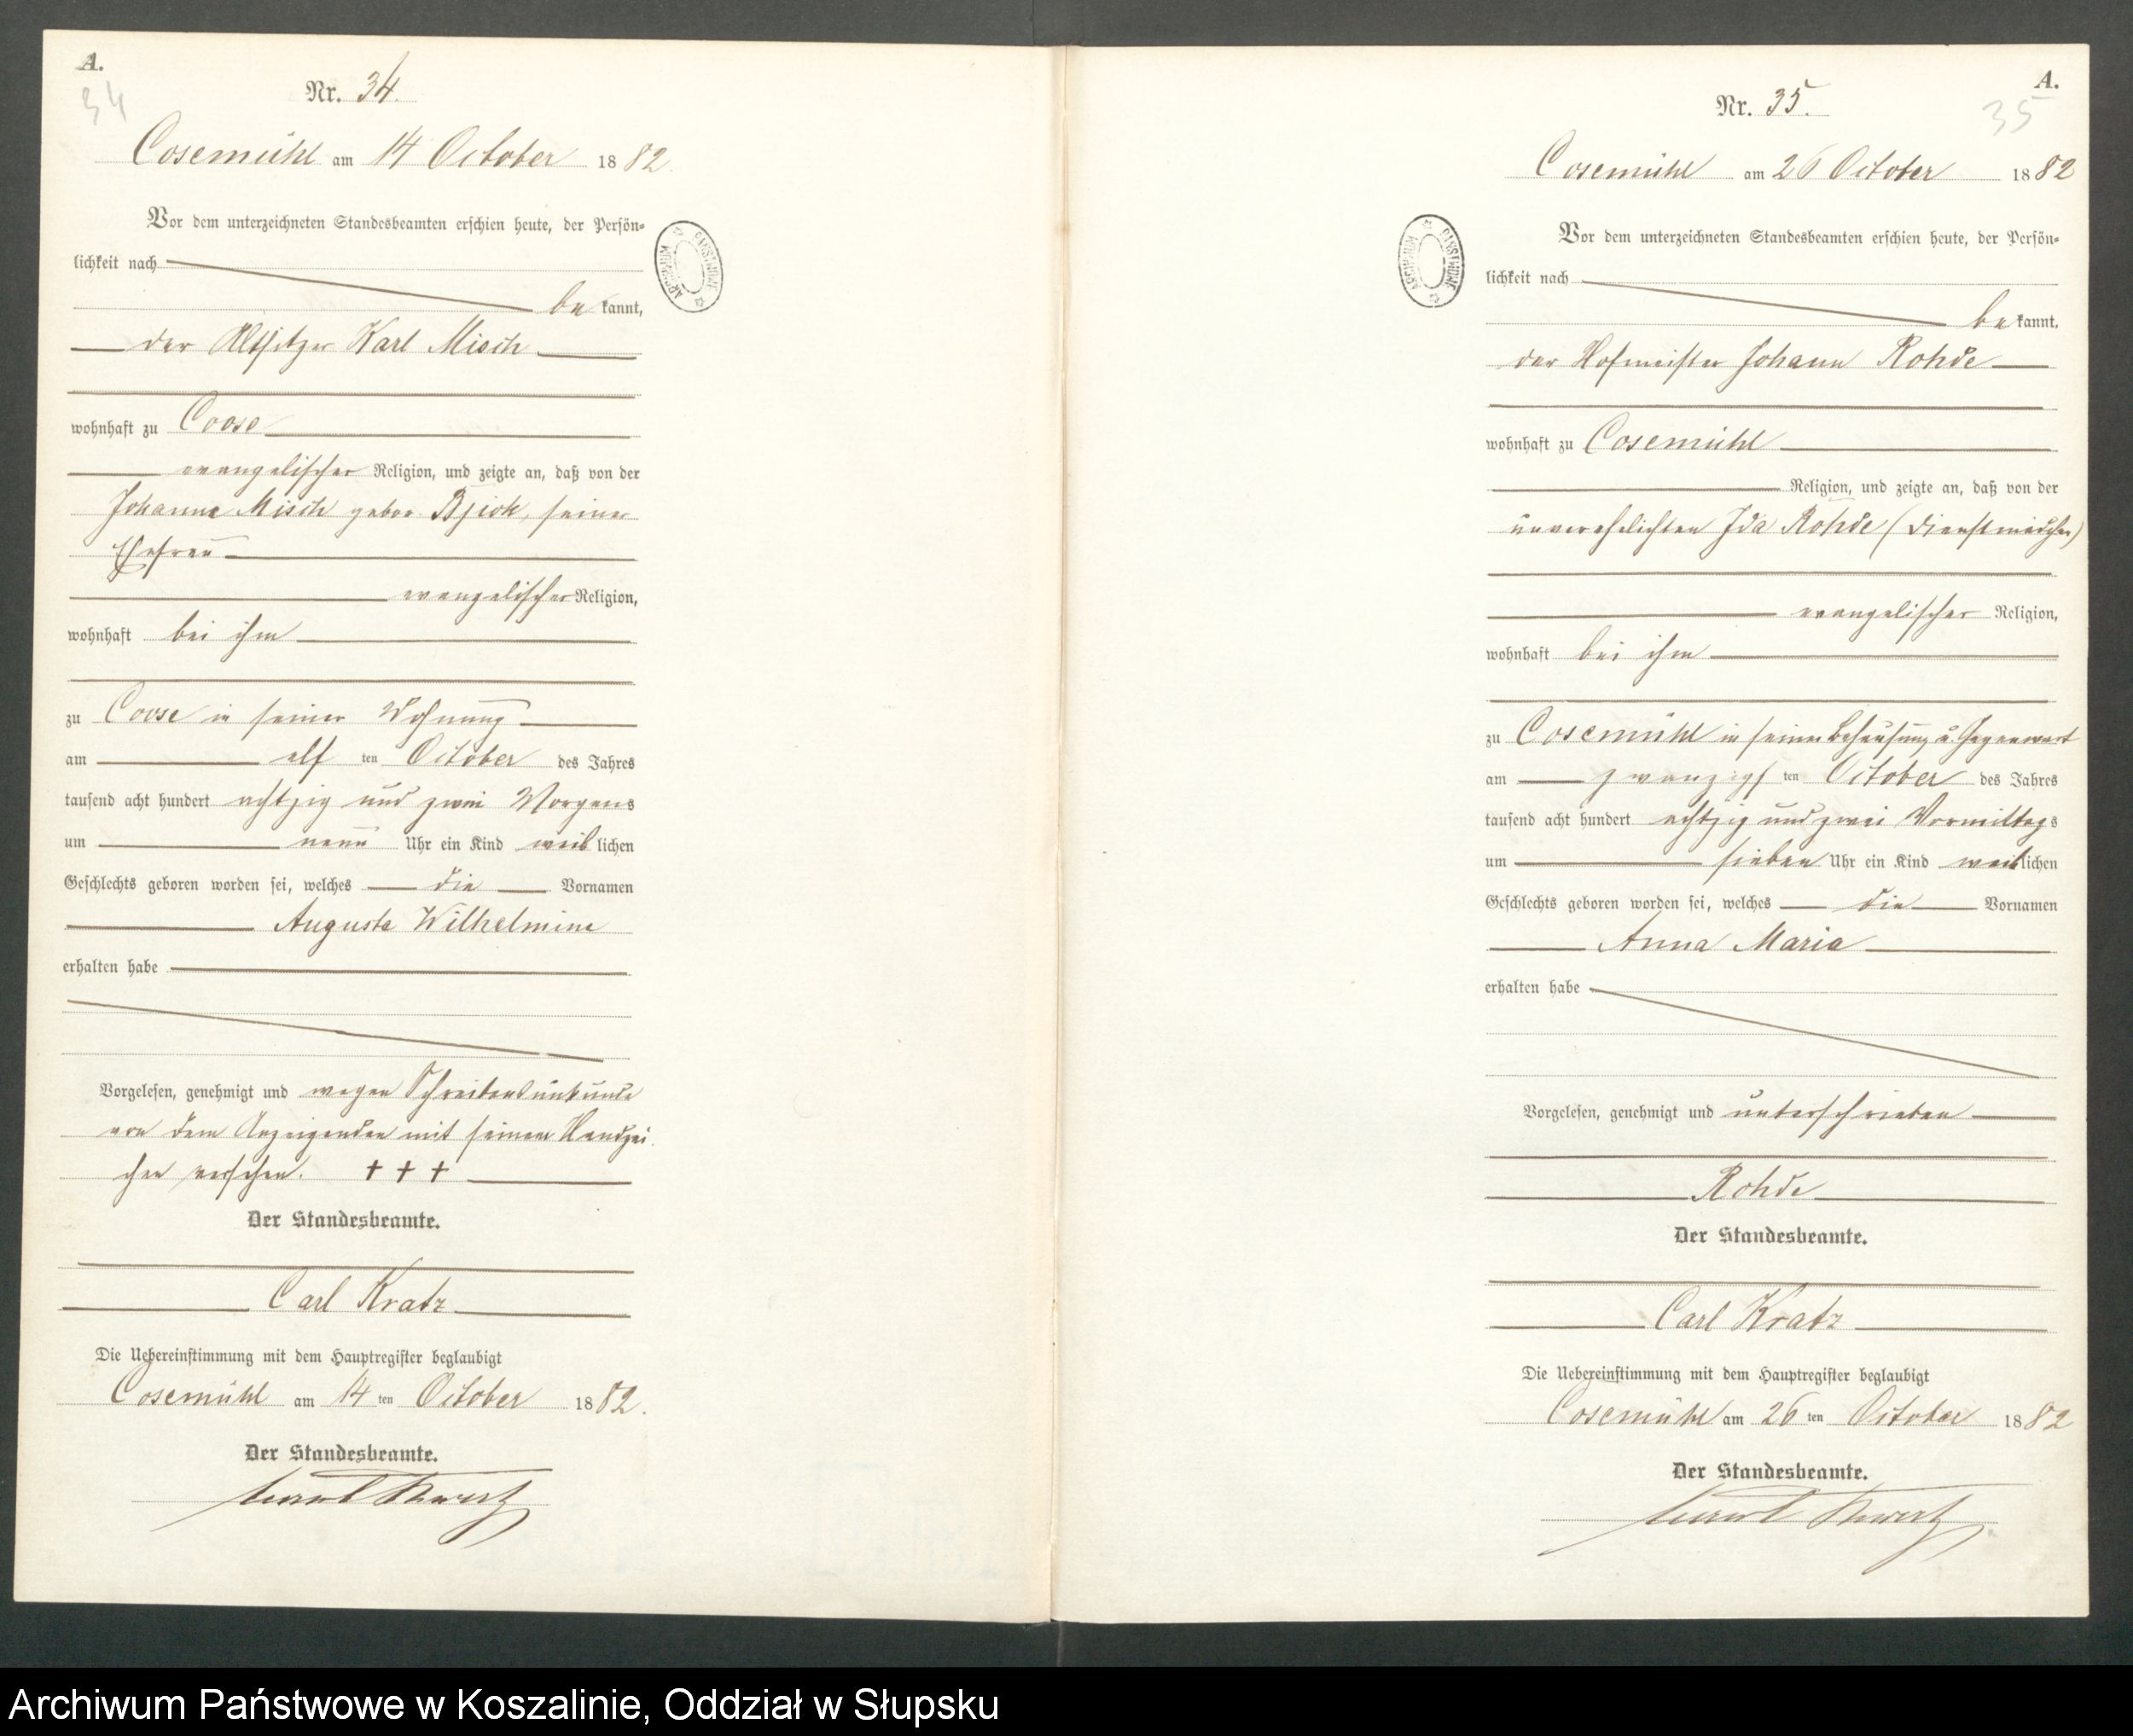 A.
34
Nr. 34.
Cosemühl am 14 October 1882.
Vor dem unterzeichneten Standesbeamten erschien heute, der Persön-
lichkeit nach
bekannt,
der Altsitzer Karl Misch
wohnhaft zu Coose
evangelischer Religion, und zeigte an, daß von der
Johanne Misch gebor. seiner
Ehefrau
evangelischer Religion,
wohnhaft bei ihm
zu Coose in seiner Wohnung
am elf ten October des Jahres
tausend acht hundert achtzig und zwei Morgens
um neun Uhr ein Kind weiblichen
Geschlechts geboren worden sei, welches die Vornamen
Auguste Wilhelmine
erhalten habe
Vorgelesen, genehmigt und wegen Schreibensunkunde
von dem Anzeigenden mit seinem Handzei-
chen versehen. † † †
Der Standesbeamte.
Carl Kratz
Die Uebereinstimmung mit dem Hauptregister beglaubigt
Cosemühl am 14 ten October 1882.
Der Standesbeamte.
A.
35
Nr. 35.
Cosemühl am 26 October 1882
Vor dem unterzeichneten Standesbeamten erschien heute, der Persön-
lichkeit nach
bekannt,
der Hofmeister Johann Rohde
wohnhaft zu Cosemühl
Religion, und zeigte an, daß von der
unverehelichten Ida Rohde (Dienstmädchen)
evangelischer Religion,
wohnhaft bei ihm
zu Cosemühl in seiner Behausung u. Gegenwart
am zwanzigs ten October des Jahres
tausend acht hundert achtzig und zwei Vormittags
um sieben Uhr ein Kind weiblichen
Geschlechts geboren worden sei, welches die Vornamen
Anna Maria
erhalten habe
Vorgelesen, genehmigt und unterschrieben
Rohde
Der Standesbeamte.
Carl Kratz
Die Uebereinstimmung mit dem Hauptregister beglaubigt
Cosemühl am 26 ten October 1882
Der Standesbeamte.
Archiwum Państwowe w Koszalinie, Oddział w Słupsku